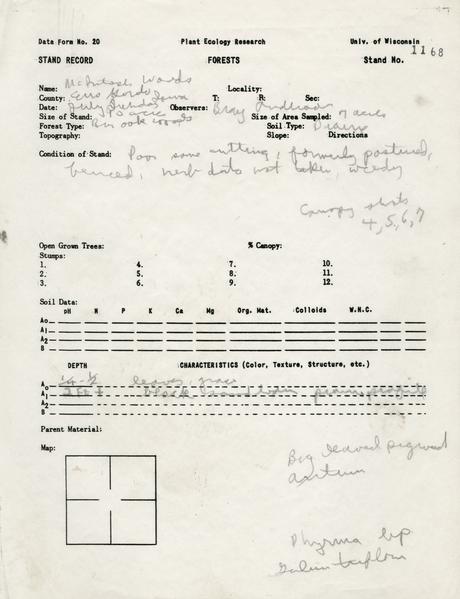 Data Form No. 20 Plant Ecology Research Univ. of Wisconsin
STAND RECORD FORESTS Stand No. 1168
Name: McIntosh Woods Locality:
County: Cerro Gordo Iowa T: R: Sec:
Date: Observers: Bray
Size of Stand: acre Size of Area Sampled: 7 acres
Forest Type: oak woods Soil Type: Prairie
Topography: Slope: Directions
Condition of Stand: Poor some cutting, formerly pastured,
fenced, herb data not taken, weedy
Canopy shots
4, 5, 6, 7
Open Grown Trees: % Canopy:
Stumps:
1. 4. 7. 10.
2. 5. 8. 11.
3. 6. 9. 12.
Soil Data:
pH N P K Ca Mg Org. Mat. Colloids W.H.C.
Ao
A1
A2
B
DEPTH CHARACTERISTICS (Color, Texture, Structure, etc.)
Ao 1/4-1/2 leaves,
A1 black sand loam prairie profile
A2
B
Parent Material:
Map:
Big leaved pigweed
Phryma lep
Galium triflorum